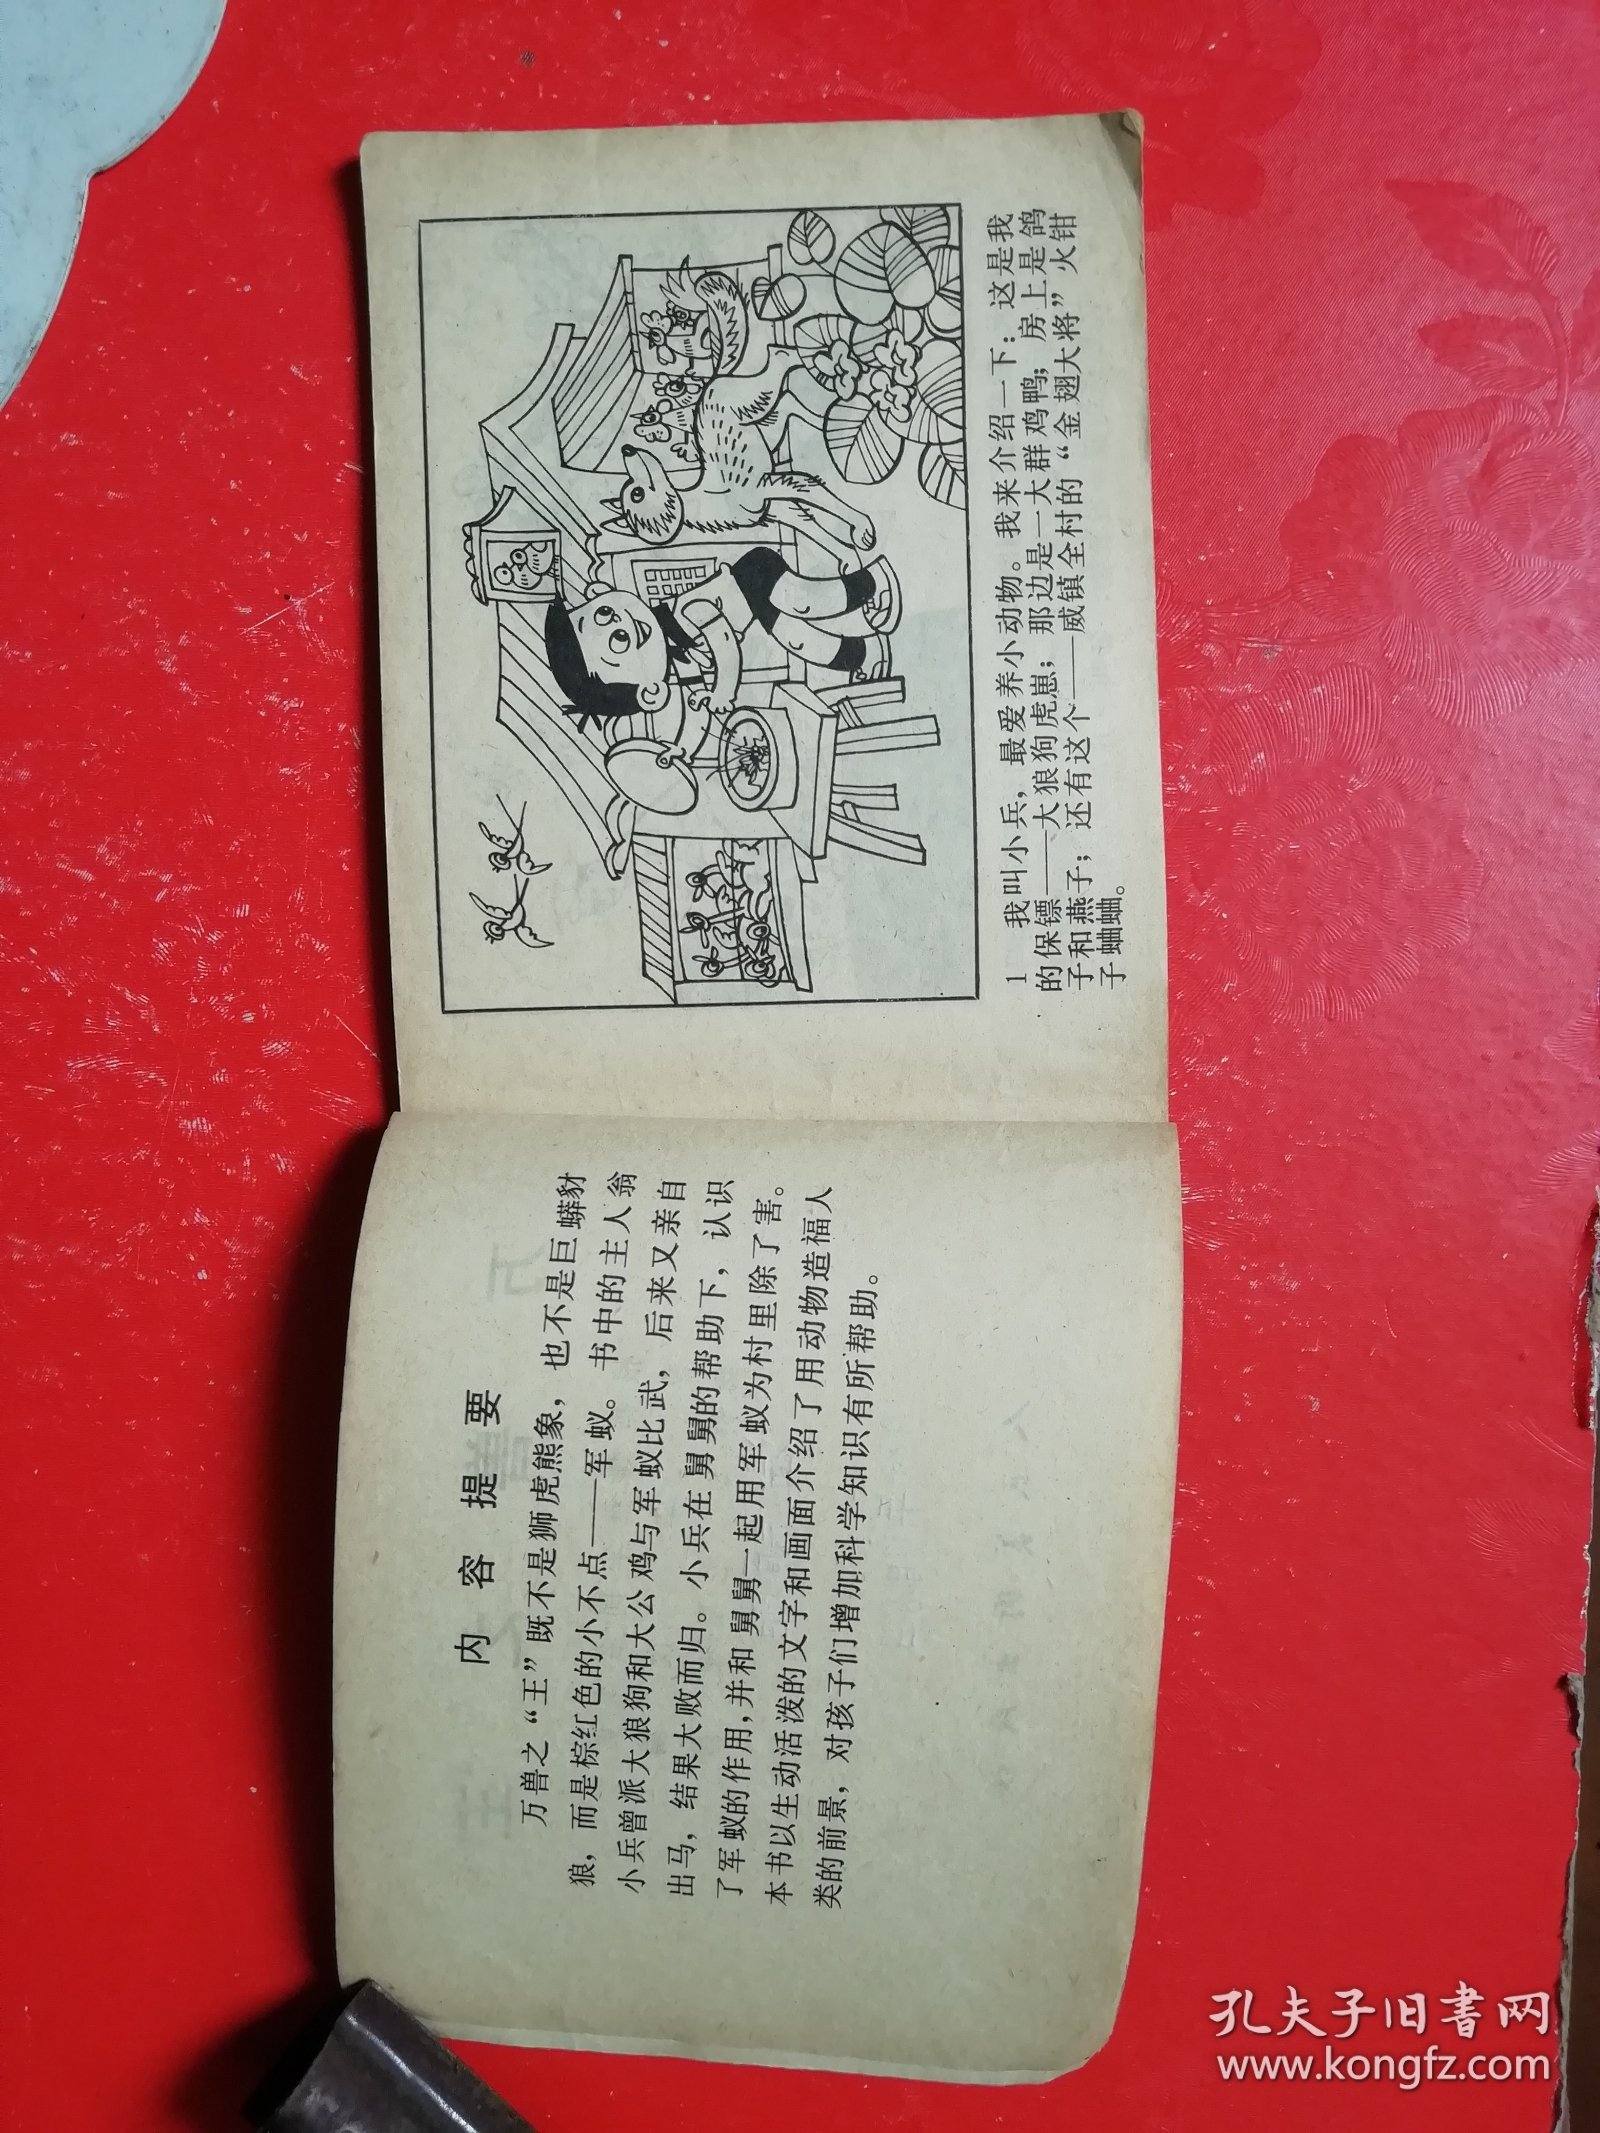 内容提要
万兽之“王”既不是狮虎熊象，也不是巨蟒豺
狼，而是棕红色的小不点——军蚁。书中的主人翁
小兵曾派大狼狗和大公鸡与军蚁比武，后来又亲自
出马，结果大败而归。小兵在舅舅的帮助下，认识
了军蚁的作用，并和舅舅一起用军蚁为村里除了害。
本书以生动活泼的文字和画面介绍了用动物造福人
类的前景，对孩子们增加科学知识有所帮助。
1 我叫小兵，最爱养小动物。我来介绍一下：这是我
的保镖——大狼狗虎崽；那边是一大群鸡鸭；房上是鸽
子和燕子；还有这个——威镇全村的“金翅大将”火钳
子蛐蛐。
孔夫子旧书网
www.kongfz.com